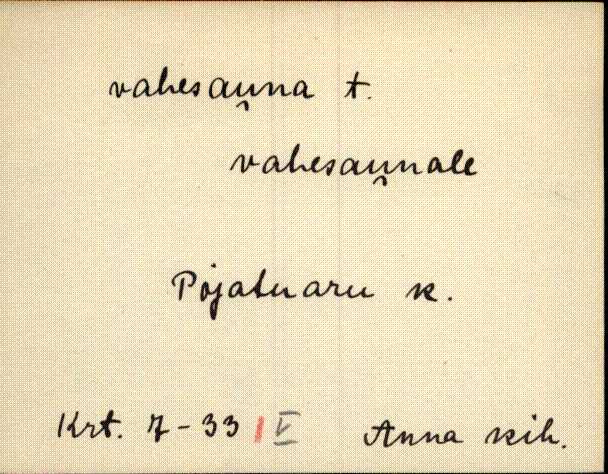 vahesau̯na t.
vahesau̯nale
Pojatuaru k.
Krt. 7-33 | V Anna kih.